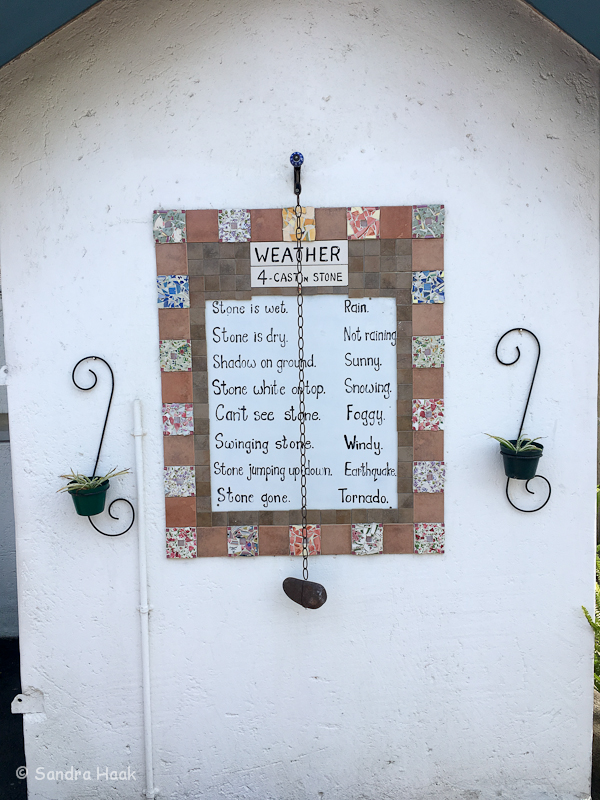 WEATHER
4-CAST IN STONE
Stone is wet. Rain.
Stone is dry. Not raining
Shadow on ground. Sunny.
Stone white on top. Snowing.
Can't see stone. Foggy.
Swinging stone. Windy.
Stone jumping up down. Earthquake.
Stone gone. Tornado.
© Sandra Haak